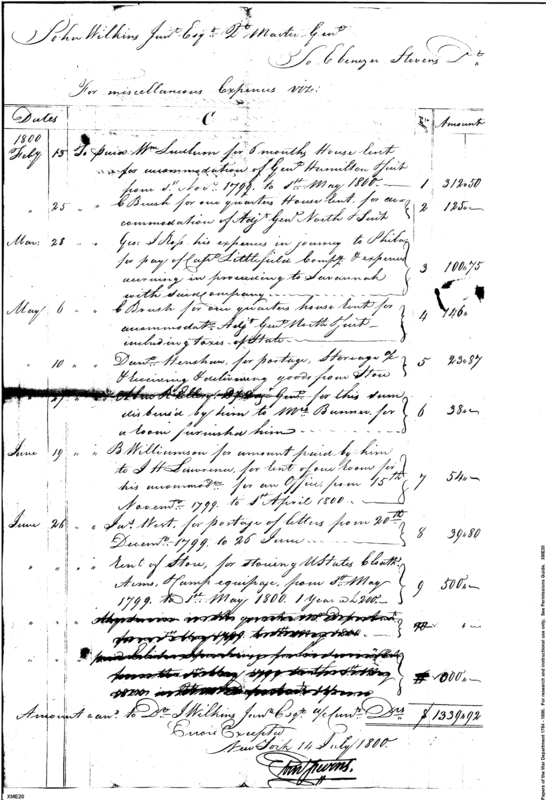 John Wilkins Junr. Esqr. Qr. Master Genl.
To Ebenezer Stevens Dr.
For miscellaneous Expences viz:
Dates C Amount
1800
Feby 15 To paid Wm for 6 months House rent
for accommodation of Genl. Hamilton & Suit
from 1st Novr. 1799. to 1st May 1800. 1 312.50
" 25 " " C Brush for one quarters House rent. for acc
commodation of Adjt. Genl. North & Suit 2 125.-
Mar. 28 " " Geo: I Ross his expences in journey to Philaa
for pay of Capt. Littlefield Compy. & expences
accruing in proceeding to Savannah
with said company 3 100.75
May 6 " " C Brush for one quarters house rent for
accommodatn. Adjt. Genl. North & Suit
including taxes of State 4 146.
" 10 " " Danl. Henshaw, for portage, Storeage &c
& receiving & delivering goods from Store 5 23.87
Genl. for this sum
disburs'd by him to Mrs. Bunner, for
a room furnished him 6 38.-
June 19 " " B Williamson for amount paid by him
to J H Lawrence, for rent of one room for
his accommodn. for an Office, from 15th
Novemr. 1799. to 1st April 1800. 7 54.-
June 26 " " Jas. West, for portage of letters from 20th
Decemr. 1799. to 26 June 8 39.80
" " " rent of Store, for storeing U States Cloathg.
Arms, & Camp equipage, from 1st May
1799. to 1st May 1800. 1 Year a £200. 9 500.-
Amount carrd. to Dr. J Wilkins Junr. Esqr. a/c Currt. $ 1339.92
Errors Excepted
New York 14 July 1800.
Eben Stevens.
Papers of the War Department 1784 - 1800. For research and instructional use only. See Permissions Guide. XME20
XME20